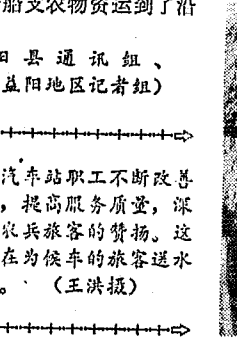 船支农物资运到了沿
田县通讯组、
益阳地区记者组）
汽车站职工不断改善
，提高服务质量，深
农兵旅客的赞扬。这
在为候车的旅客送水
。 （王洪摄）